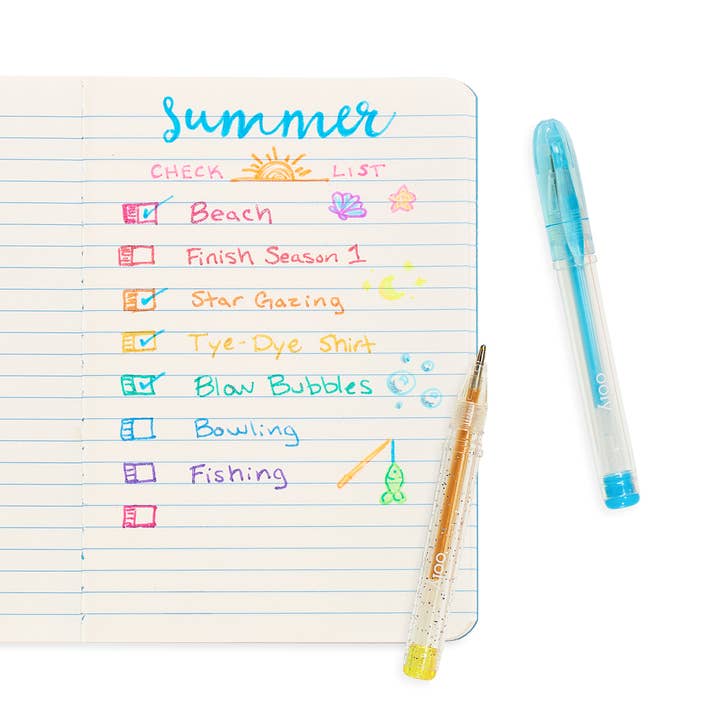 Summer
CHECK LIST
Beach
Finish Season 1
Star Gazing
Tye-Dye Shirt
Blow Bubbles
Bowling
Fishing
ooly
ooly